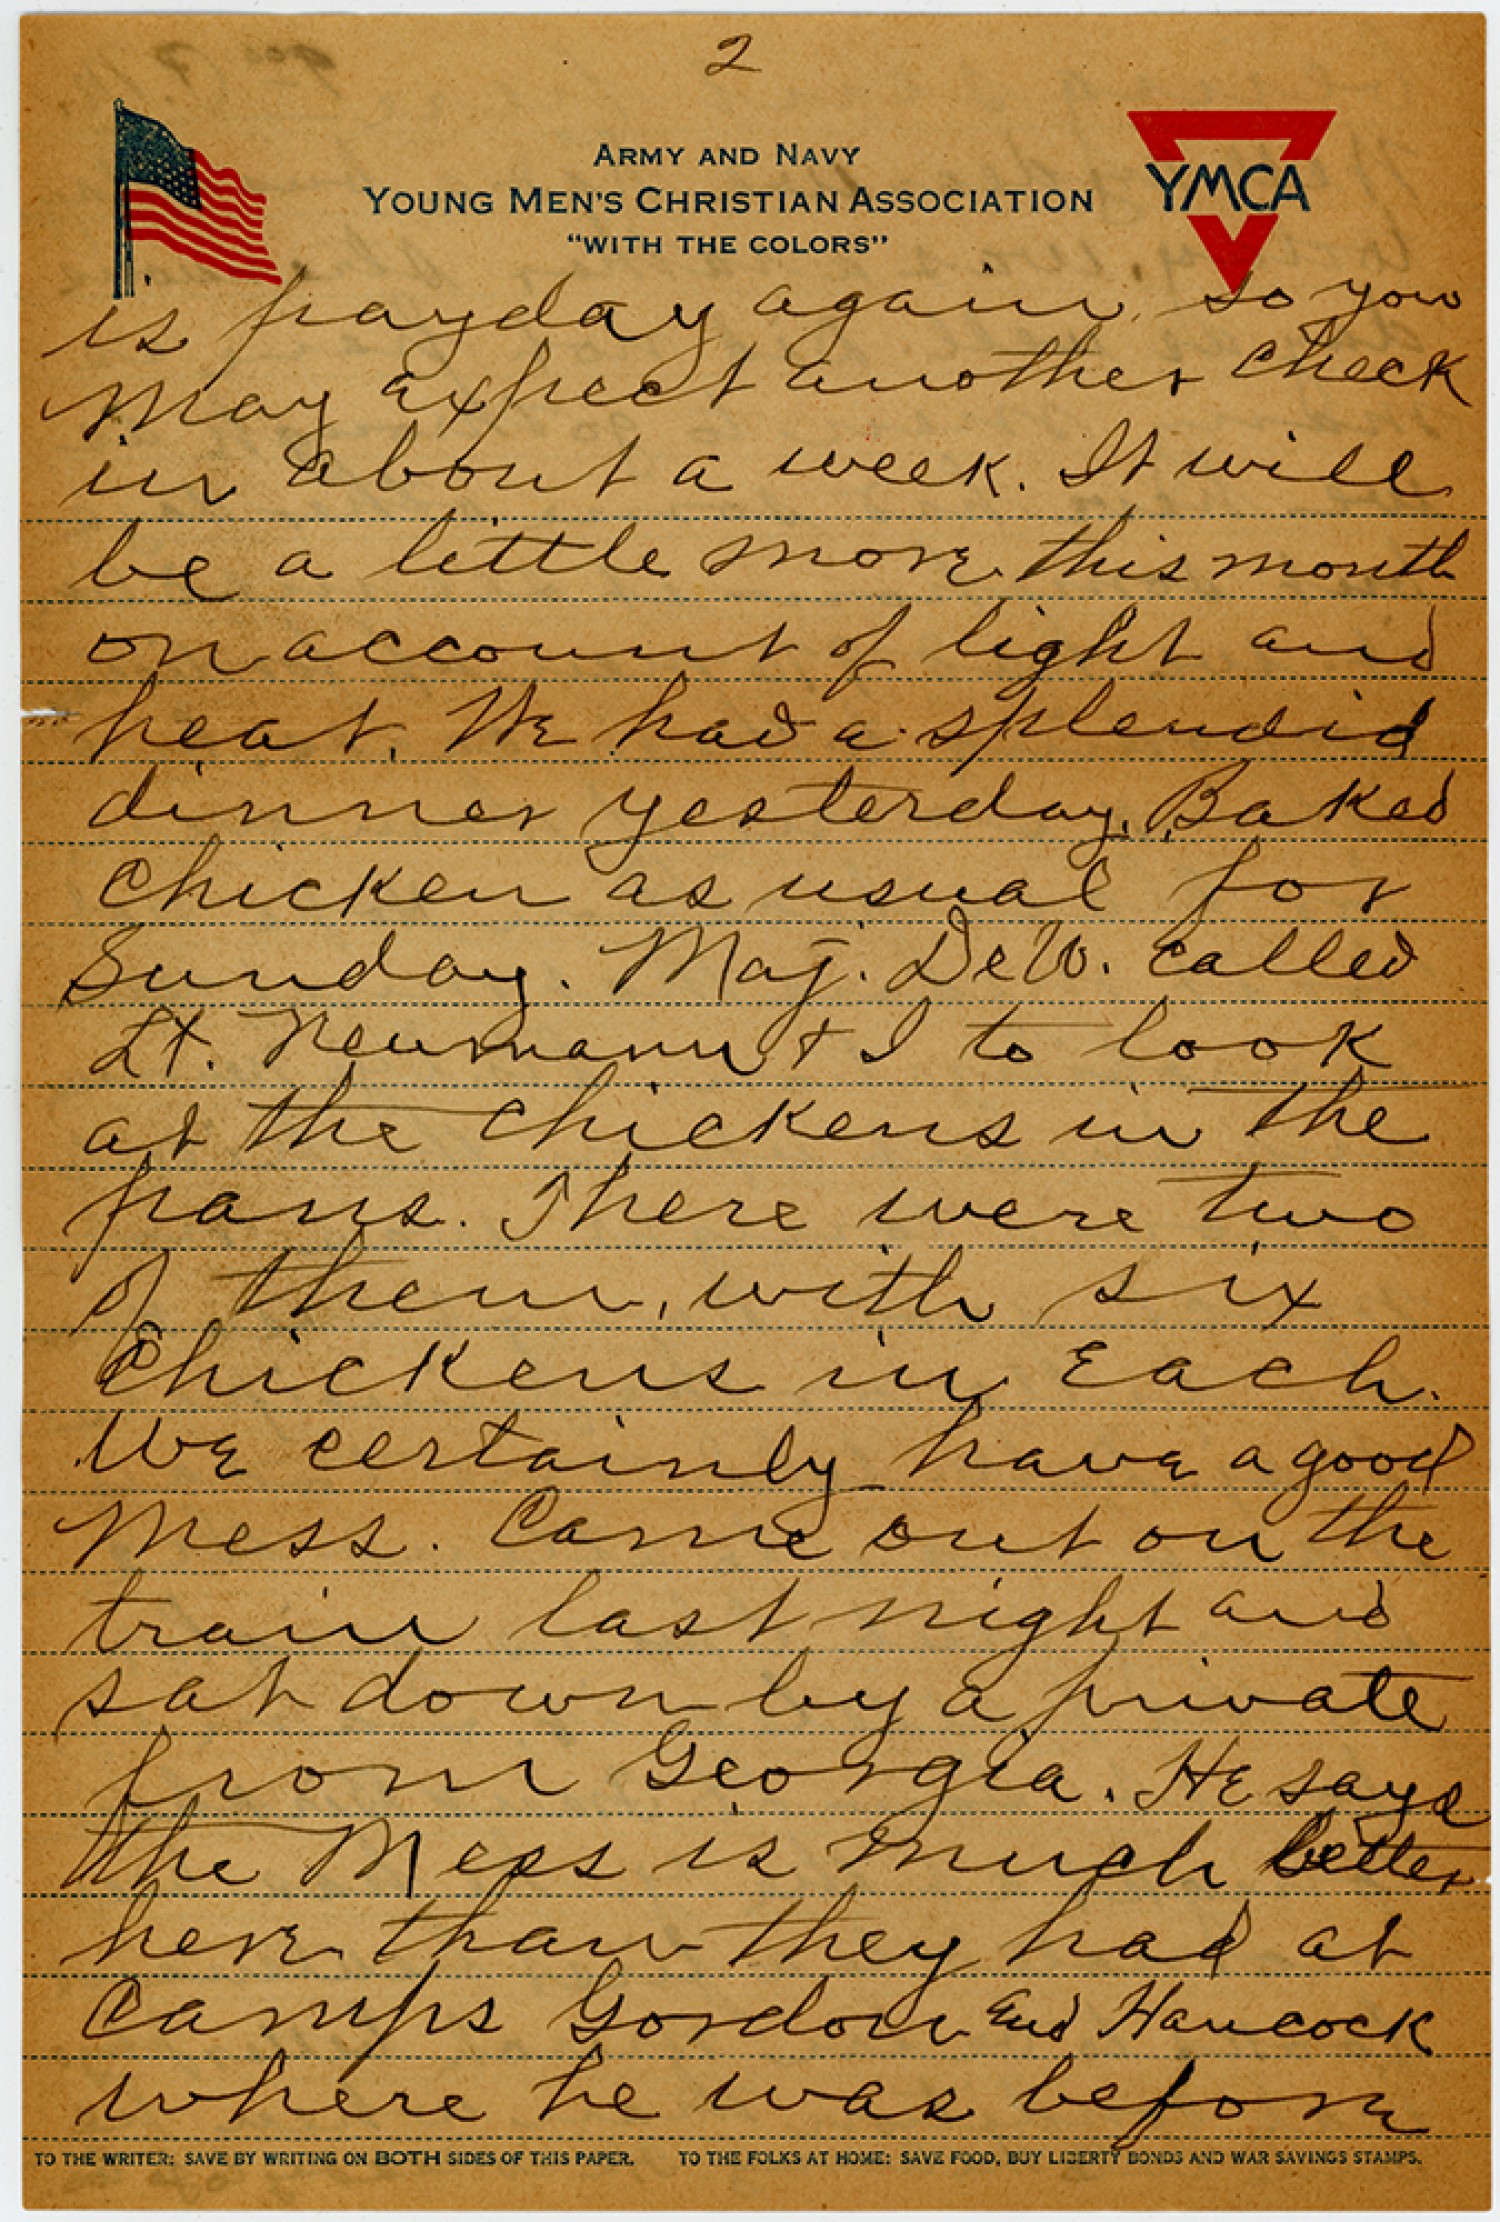 2
ARMY AND NAVY
YOUNG MEN'S CHRISTIAN ASSOCIATION
"WITH THE COLORS"
YMCA
is payday again, so you
may expect another check
in about a week. It will
be a little more this month
on account of light and
heat. We had a splendid
dinner yesterday. Baked
chicken as usual for
Sunday. Maj. DeW. called
Lt. Neumann + I to look
at the chickens in the
pans. There were two
of them, with six
chickens in each.
We certainly have a good
Mess. Came out on the
train last night and
sat down by a private
from Georgia. He says
the Mess is much better
here than they had at
Camps Gordon and Hancock
where he was before
TO THE WRITER: SAVE BY WRITING ON BOTH SIDES OF THIS PAPER. TO THE FOLKS AT HOME: SAVE FOOD, BUY LIBERTY BONDS AND WAR SAVINGS STAMPS.